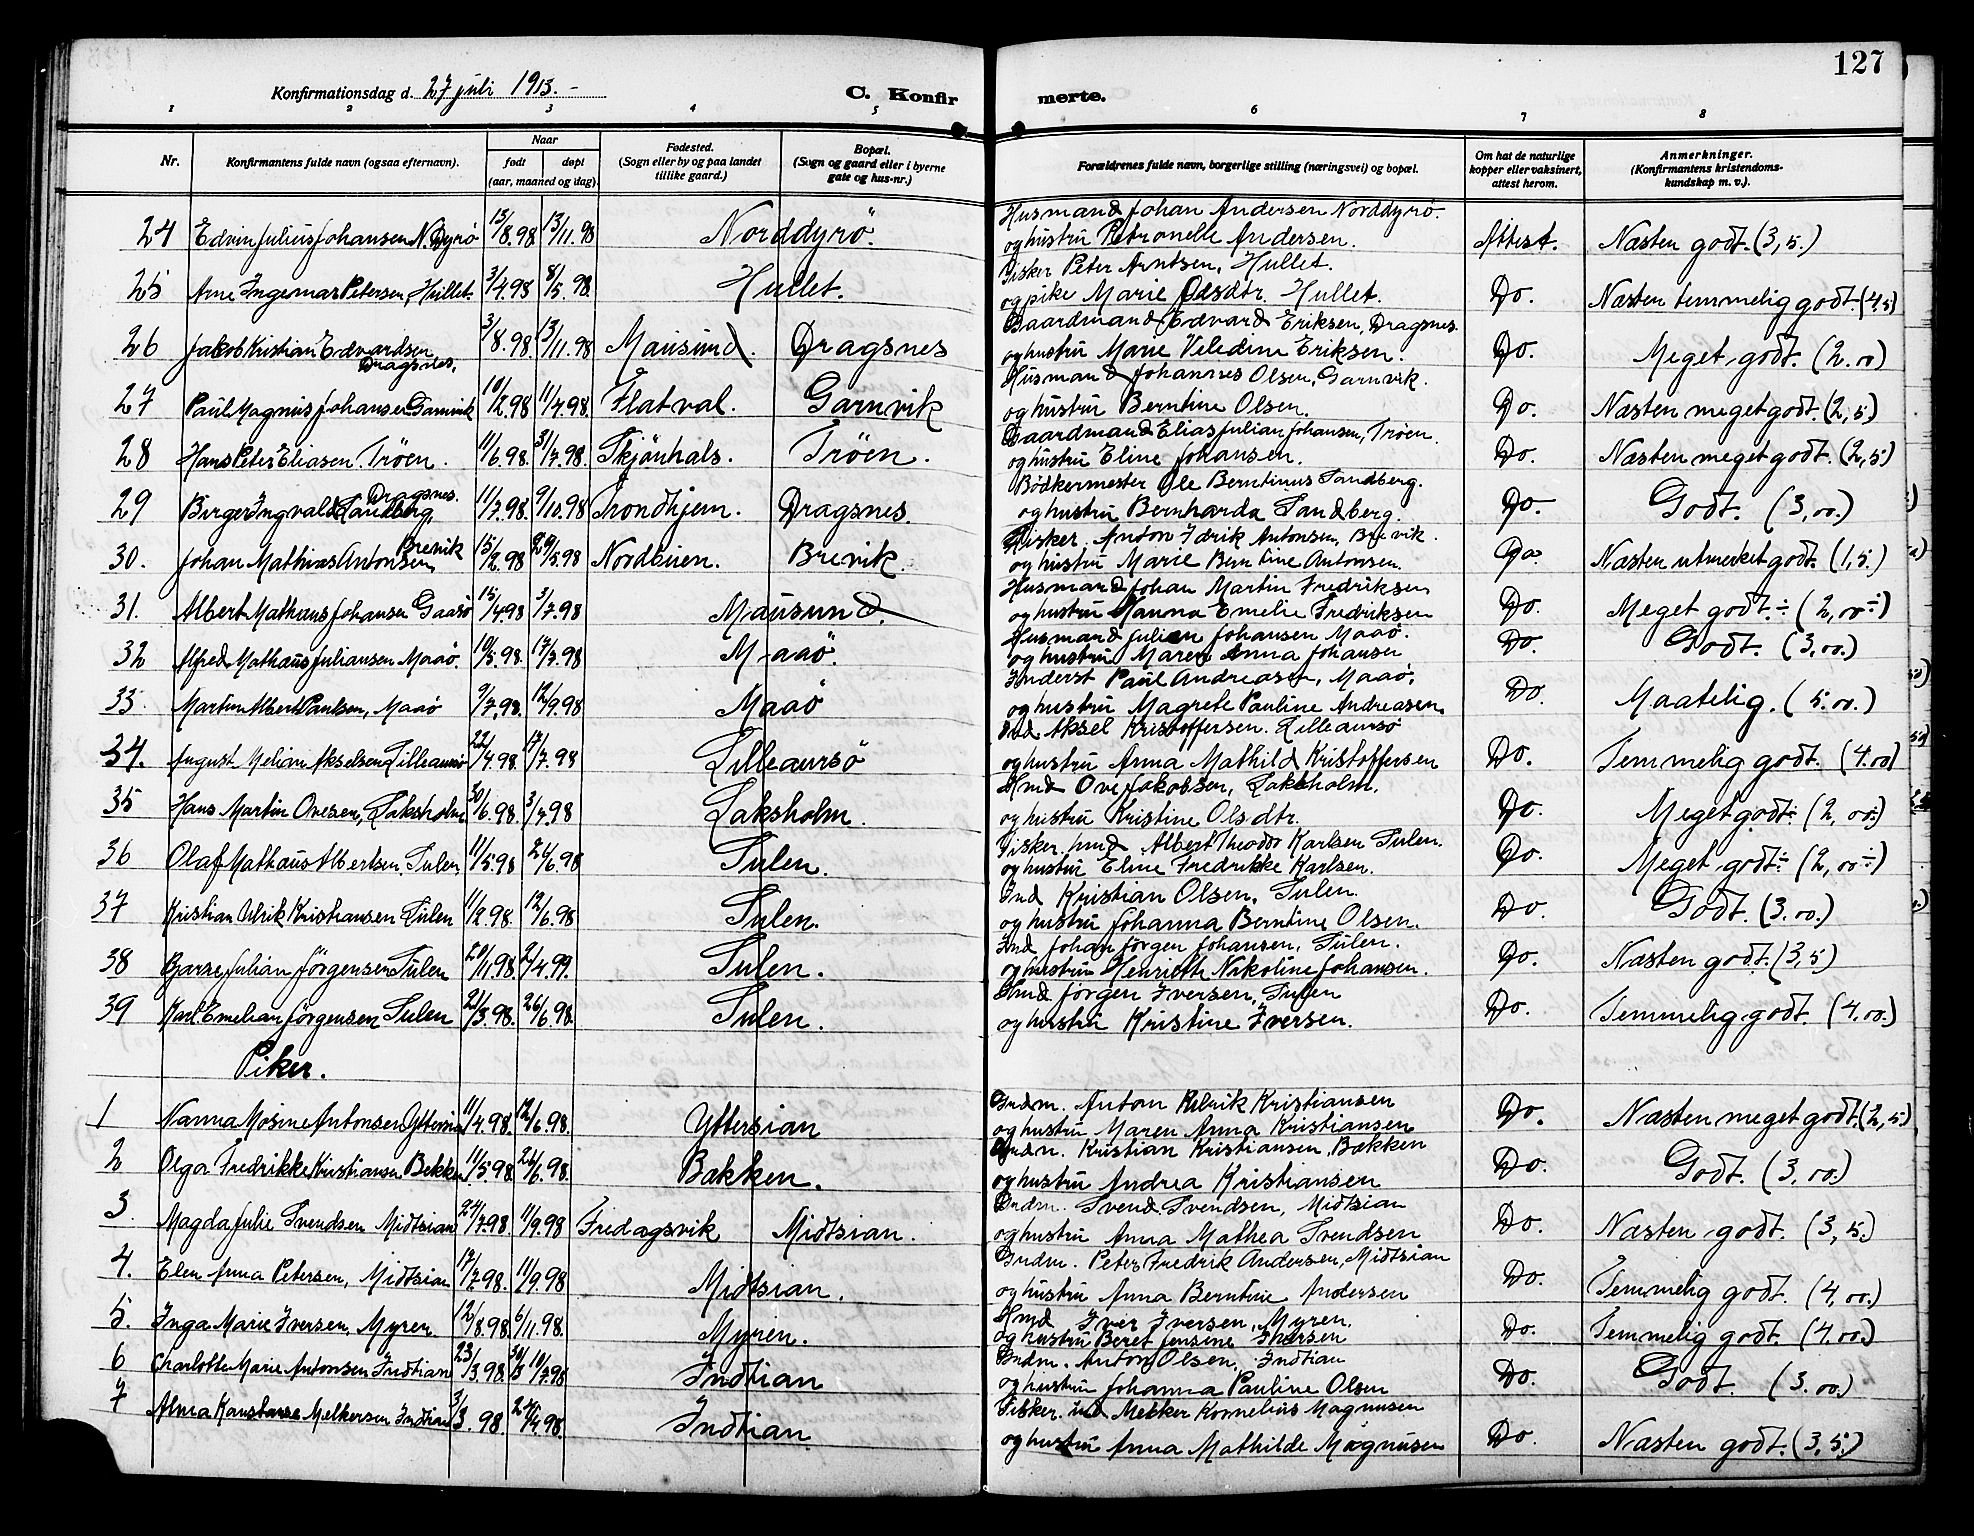 127
Konfirmationsdag d. 27 juli 1913.-
C. Konfirmerte.
1 2 3 4 5 6 7 8
Nr. Konfirmantens fulde navn (og saa efternavn). Naar født døpt (aar, maaned og dag) Fødested. (Sogn eller by og paa landet tillike gaard.) Bopæl. (Sogn og gaard eller i byerne gate og hus-nr.) Forældrenes fulde navn, borgerlige stilling (næringsvei) og bopæl. Om hat de naturlige kopper eller vaksinert, attest herom. Anmerkninger. (Konfirmantens kristendoms-kundskap m. v.).
24 Edvin Julius Johansen N. Dyrö 13/8.98 13/11.98 Norddyrö. Husmand Johan Andersen Norddyrö. Attest. Næsten godt. (3,5.)
og hustru Petronelle Andersen.
25 Arne Ingemar Petersen, Hullet. 3/4.98 8/5.98 Hullet. Fisker Peter Arntsen, Hullet. Do. Næsten temmelig godt. (4,5)
og pike Marie Olsdtr. Hullet.
26 Jakob Kristian Edvardsen Dragsnes. 3/8.98. 13/11.98 Mausund. Dragsnes Gaardmand Edvard Eriksen, Dragsnes Do. Meget godt. (2.00)
og hustru Marie Veledine Eriksen.
27 Paul Magnus Johansen Garnvik 10/2.98 11/4.98. Flatval. Garnvik Husmand Johannes Olsen, Garnvik. Do. Næsten meget godt. (2,5)
og hustru Berntine Olsen.
28 Hans Peter Eliasen. Tröen. 11/6.98. 31/7.98. Skjönhals. Tröen. Gaardmand Elias Julian Johansen, Tröen. Do. Næsten meget godt. (2,5)
og hustru Eline Johansen.
29 Birger Ingvald Sandberg, Dragsnes. 11/7.98. 9/10.98 Trondhjem. Dragsnes. Bødkermester Ole Berntinus Sandberg. Do. Godt. (3,00.)
og hustru Bernharda Sandberg.
30. Johan Mathias Antonsen Brevik 15/2.98 29/5.98 Nordbuen. Brevik. Fisker. Anton Edrik Antonsen, Brevik. Do. Næsten utmerket godt. (1,5.)
og hustru Marie Berntine Antonsen.
31. Albert Mathæus Johansen Gaasö 15/4.98 3/7.98 Mausund. Husmand Johan Martin Fredriksen Do. Meget godt÷ (2,00÷)
og hustru Nanna Emelie Fredriksen
32 Alfred Mathäus Juliansen Maaö. 10/5.98. 17/7.98 Maaö. Husmand Julian Johansen Maaö. Do. Godt. (3,00.)
og hustru Maren Anna Johansen
33. Martin Albert Paulsen, Maaö 9/7.98. 12/9.98 Maaö Inderst Paul Andreasen, Maaö. Do. Maatelig. (5.00.)
og hustru Magrete Pauline Andreasen.
34. August Meliam Akselsen Lilleaursö 22/4.98. 17/7.98 Lilleaursö Ind Aksel Kristoffersen. Lilleaursö Do. Temmelig godt. (4.00)
og hustru Anna Mathild Kristoffersen
35 Hans Martin Ovesen, Laksholm 30/6.98. 3/7.98 Laksholm. Hmd Ove Jakobsen, Laksholm. Do. Meget godt÷ (2,00÷)
og hustru Kristine Olsdtr.
36 Olaf Mathäus Albertsen. Sulen. 11/5.98 26/6.98 Sulen. Fisker. hmd Albert Theodor Karlsen Sulen. Do. Meget godt÷ (2,00÷)
og hustru Eline Fredrikke Karlsen.
37 Kristian Ulrik Kristiansen Sulen 11/2.98. 12/6.98 Sulen. Ind Kristian Olsen, Sulen. Do. Godt. (3.00.)
og hustru Johanna Berntine Olsen.
38 Julian Jörgensen Sulen 20/11.98. 2/4.99. Sulen. Ind Johan Jörgen Johansen, Sulen. Do. Næsten godt. (3,5)
og hustru Henriette Nikoline Johansen.
39 Karl Emelian Jörgensen Sulen 21/3.98. 26/6.98. Sulen. Hmd Jörgen Iversen, Sulen Do. Temmelig godt. (4.00.)
og hustru Kristine Iversen.
Piker.
1 Nanna Mosine Antonsen Yttersian 11/4.98. 12/6.98. Yttersian Grdm. Anton Ulrik Kristiansen Do. Næsten meget godt. (2,5)
og hustru Maren Anna Kristiansen
2 Olga Fredrikke Kristiansen Bekken 11/5.98. 26/6.98. Bakken. Grdm. Kristian Kristiansen. Bakken Do. Godt. (3,00.)
og hustru Andrea Kristiansen
3. Magda Julie Svendsen Midtsian 24/7.98. 11/9.98 Fredagsvik Midtsian. Grdm. Svend Svendsen, Midtsian Do. Næsten godt. (3,5.)
og hustru Anna Mathea Svendsen
4. Elen Anna Petersen, Midtsian 17/7.98. 11/9.98 Midtsian. Grdm. Peter Fredrik Andersen, Midtsian Do. Temmelig godt. (4,00.)
og hustru Anna Berntine Andersen
5. Inga Marie Iversen, Myren 12/8.98. 6/11.98. Myren. Hmd Iver Iversen, Myren. Do. Temmelig godt. (4.00.)
og hustru Beret Jensine Iversen
6 Charlotte Marie Antonsen Indtian 23/3.98. 10/7.98 Indtian Grdm. Anton Olsen, Indtian Do. Godt. (3.00.)
og hustru Johanna Pauline Olsen
7 Alma Konstanse Melkersen Indtian 3/3.98. 24/4.98. Indtian. Fisker. ind Melker Kornelius Magnusen Do. Næsten godt. (3,5.)
og hustru Anna Mathilde Magnusen